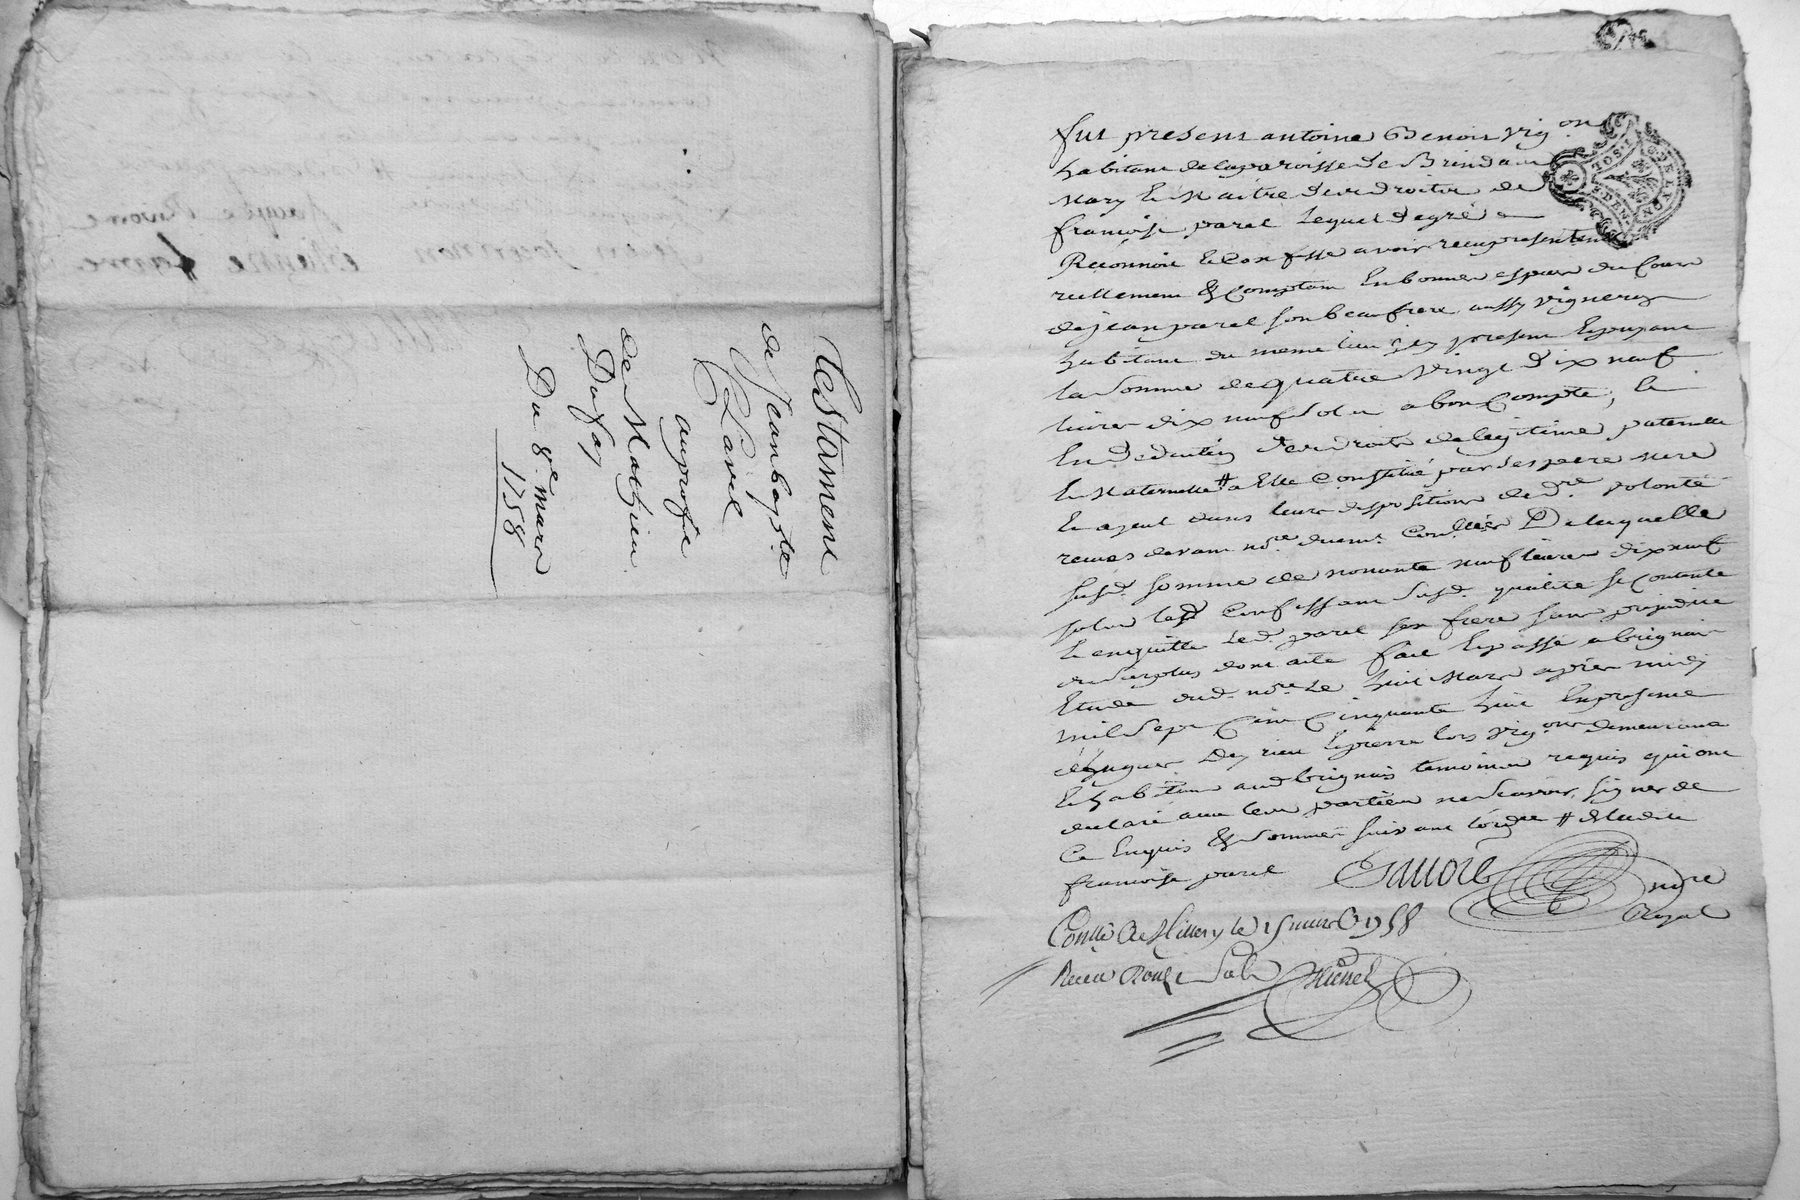 Testament
de Jeanbaptte
Parel
auproffit
de Mathieu
Dufay
Du 8e mars
1758
fut present antoine Benoit vigon
habitant de la paroisse de Brindas
Mary Et Maitre des droits de
francoise parel Lequel de gré a
Reconnu Et Confesse avoir recu presentement
reellement & Comptant En bonnes especes du Cours
de jean parel son beaufrere aussy vigneron
habitant du meme lieu icy present Et payant
la somme de quatre vingt dix neuf
livres dix neuf sols a bon Compte, &
En deduction des droits de legitime paternelle
Et Maternelle # a Elle Constitué par ses pere mere
Et ayeul dans leurs dispositions de dre volonté
recues devant nore duement Conllées De laquelle
susd. somme de nonante neuf livres dix neuf
sols led Confessant susd. qualité se Contente
Et en quitte led. parel son frere sans prejudice
du surplus dont acte fait Et passé a brignais
Etude dud. nore Le huit Mars apres midy
mil sept Cent Cinquante huit En presence
d'hugues Deyrieu Et pierre lors vigons demeurants
Et habitants aud brignais temoins requis qui ont
declaré avec les parties ne scavoir signer de
Ce Enquis & sommés suivant l'ordce # a ladite
francoise parel
nore
Royal
Conllé a St Millery le 15 mars 1758
Recu Douze sols